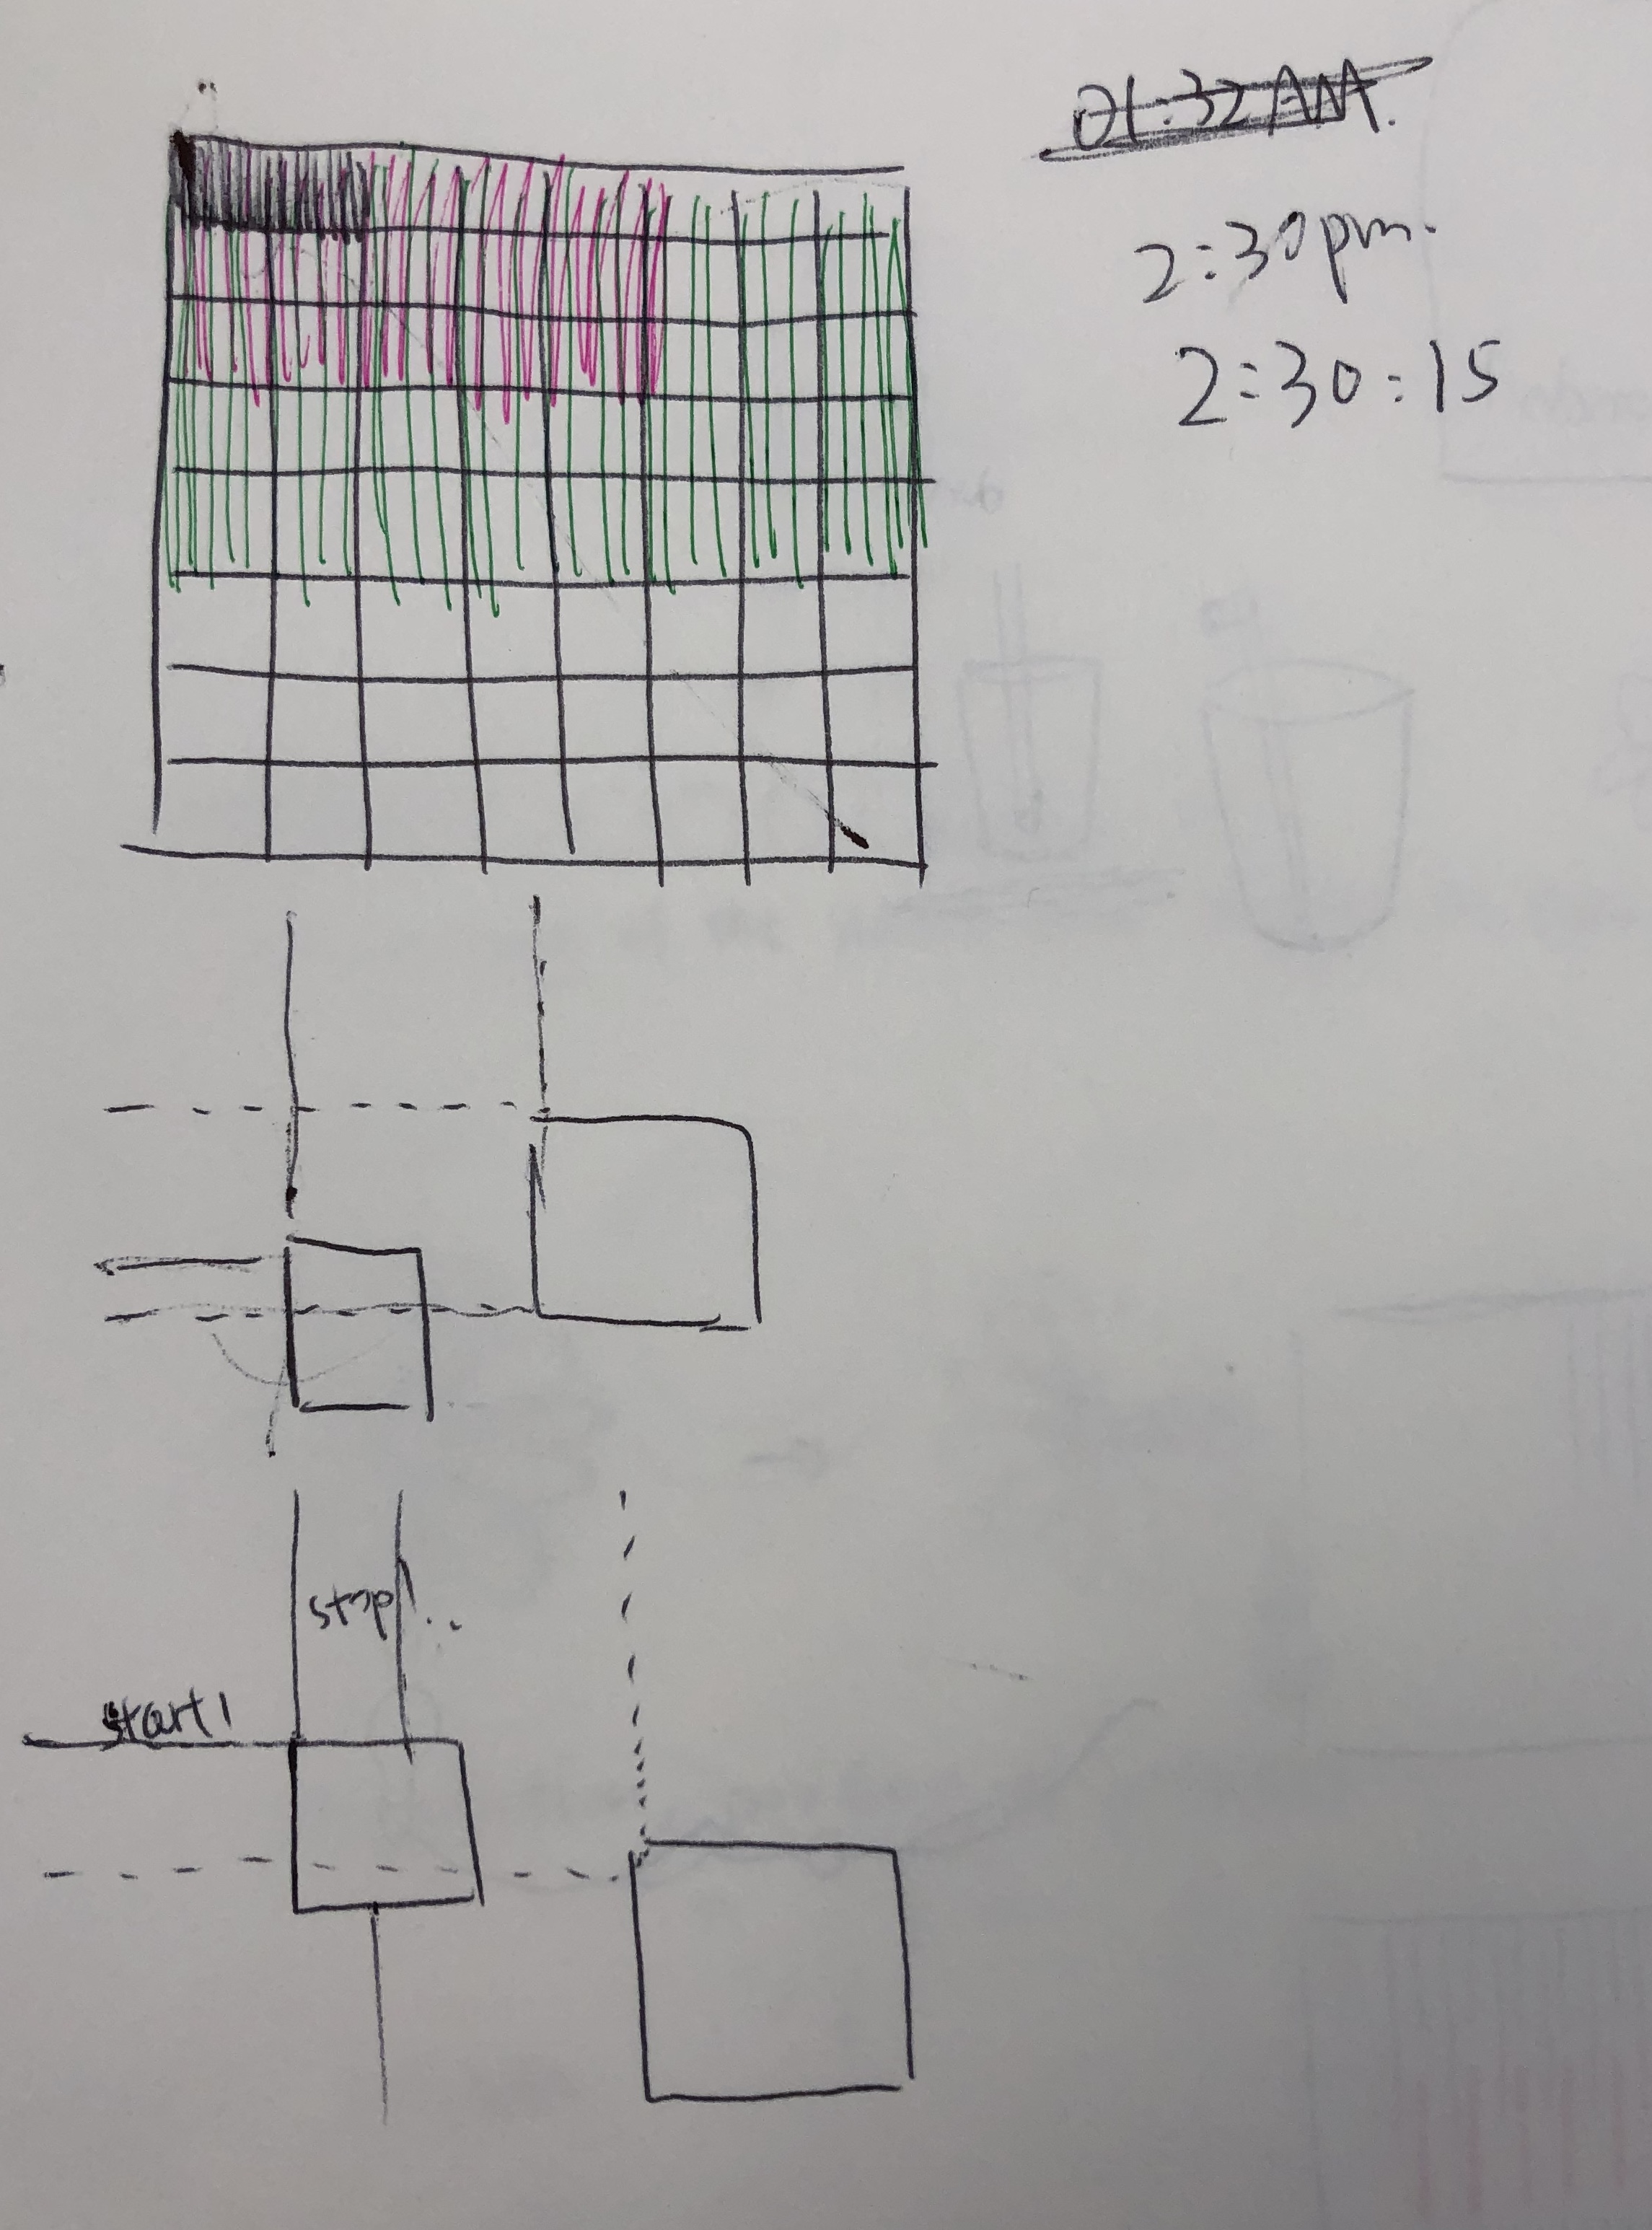 01:32 AM.
2:30pm.
2:30:15
stop!..
start!